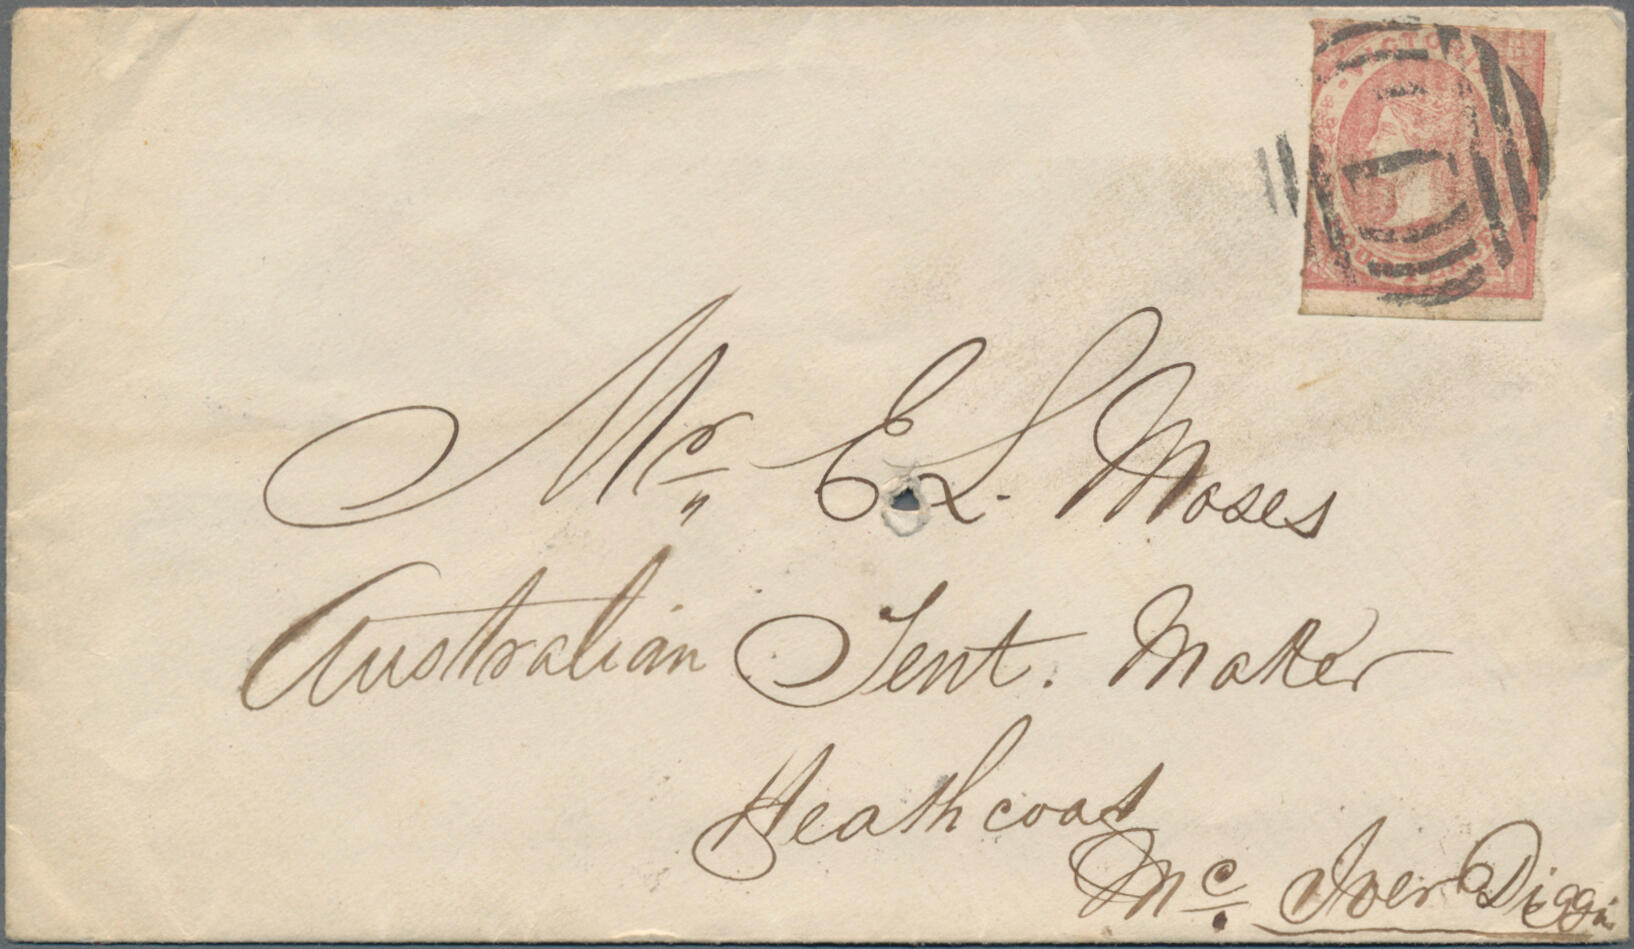 VICTORIA
1
Mr E L. Moses
Australian Tent. Maker
Heathcoat
Mc Iver Diggi